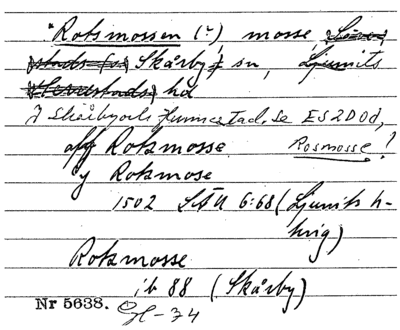 *Rotsmossen (?), mosse,
Skårby sn, Ljunits
hd
I Skårby och Hunnestad, se ES2D0d,
aff Rotzmosse. Rosmosse!
y Rotzmose
1502 SÄU 6:68 (Ljunits h-
Rotzmosse
ib 88 (Skårby)
Nr 5638.